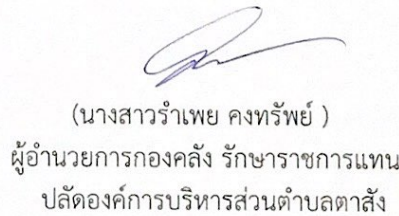 (นางสาวรำเพย คงทรัพย์ )
ผู้อำนวยการกองคลัง รักษาราชการแทน
ปลัดองค์การบริหารส่วนตำบลตาสัง